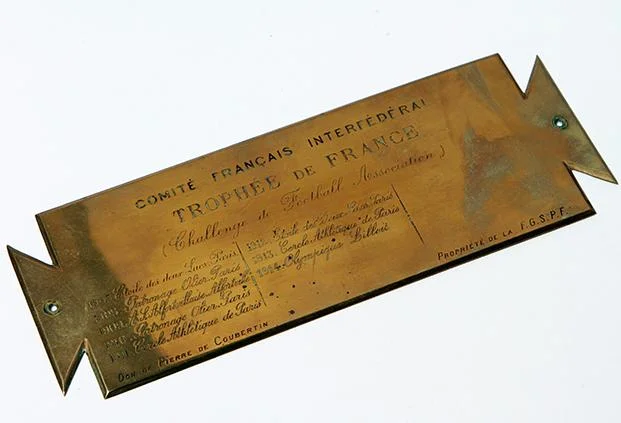 COMITÉ FRANÇAIS INTERFÉDÉRAL
TROPHÉE DE FRANCE
(Challenge de Football Association)
Étoile des deux Lacs. Paris
Patronage Olier. Paris
Alfortvillaise Alfortville
Patronage Olier. Paris
1911. Cercle Athlétique de Paris
1912. Étoile des Deux Lacs Paris
1913. Cercle Athlétique de Paris
1914. Olympique Lillois
DON DE PIERRE DE COUBERTIN
PROPRIÉTÉ DE LA F.G.S.P.F.